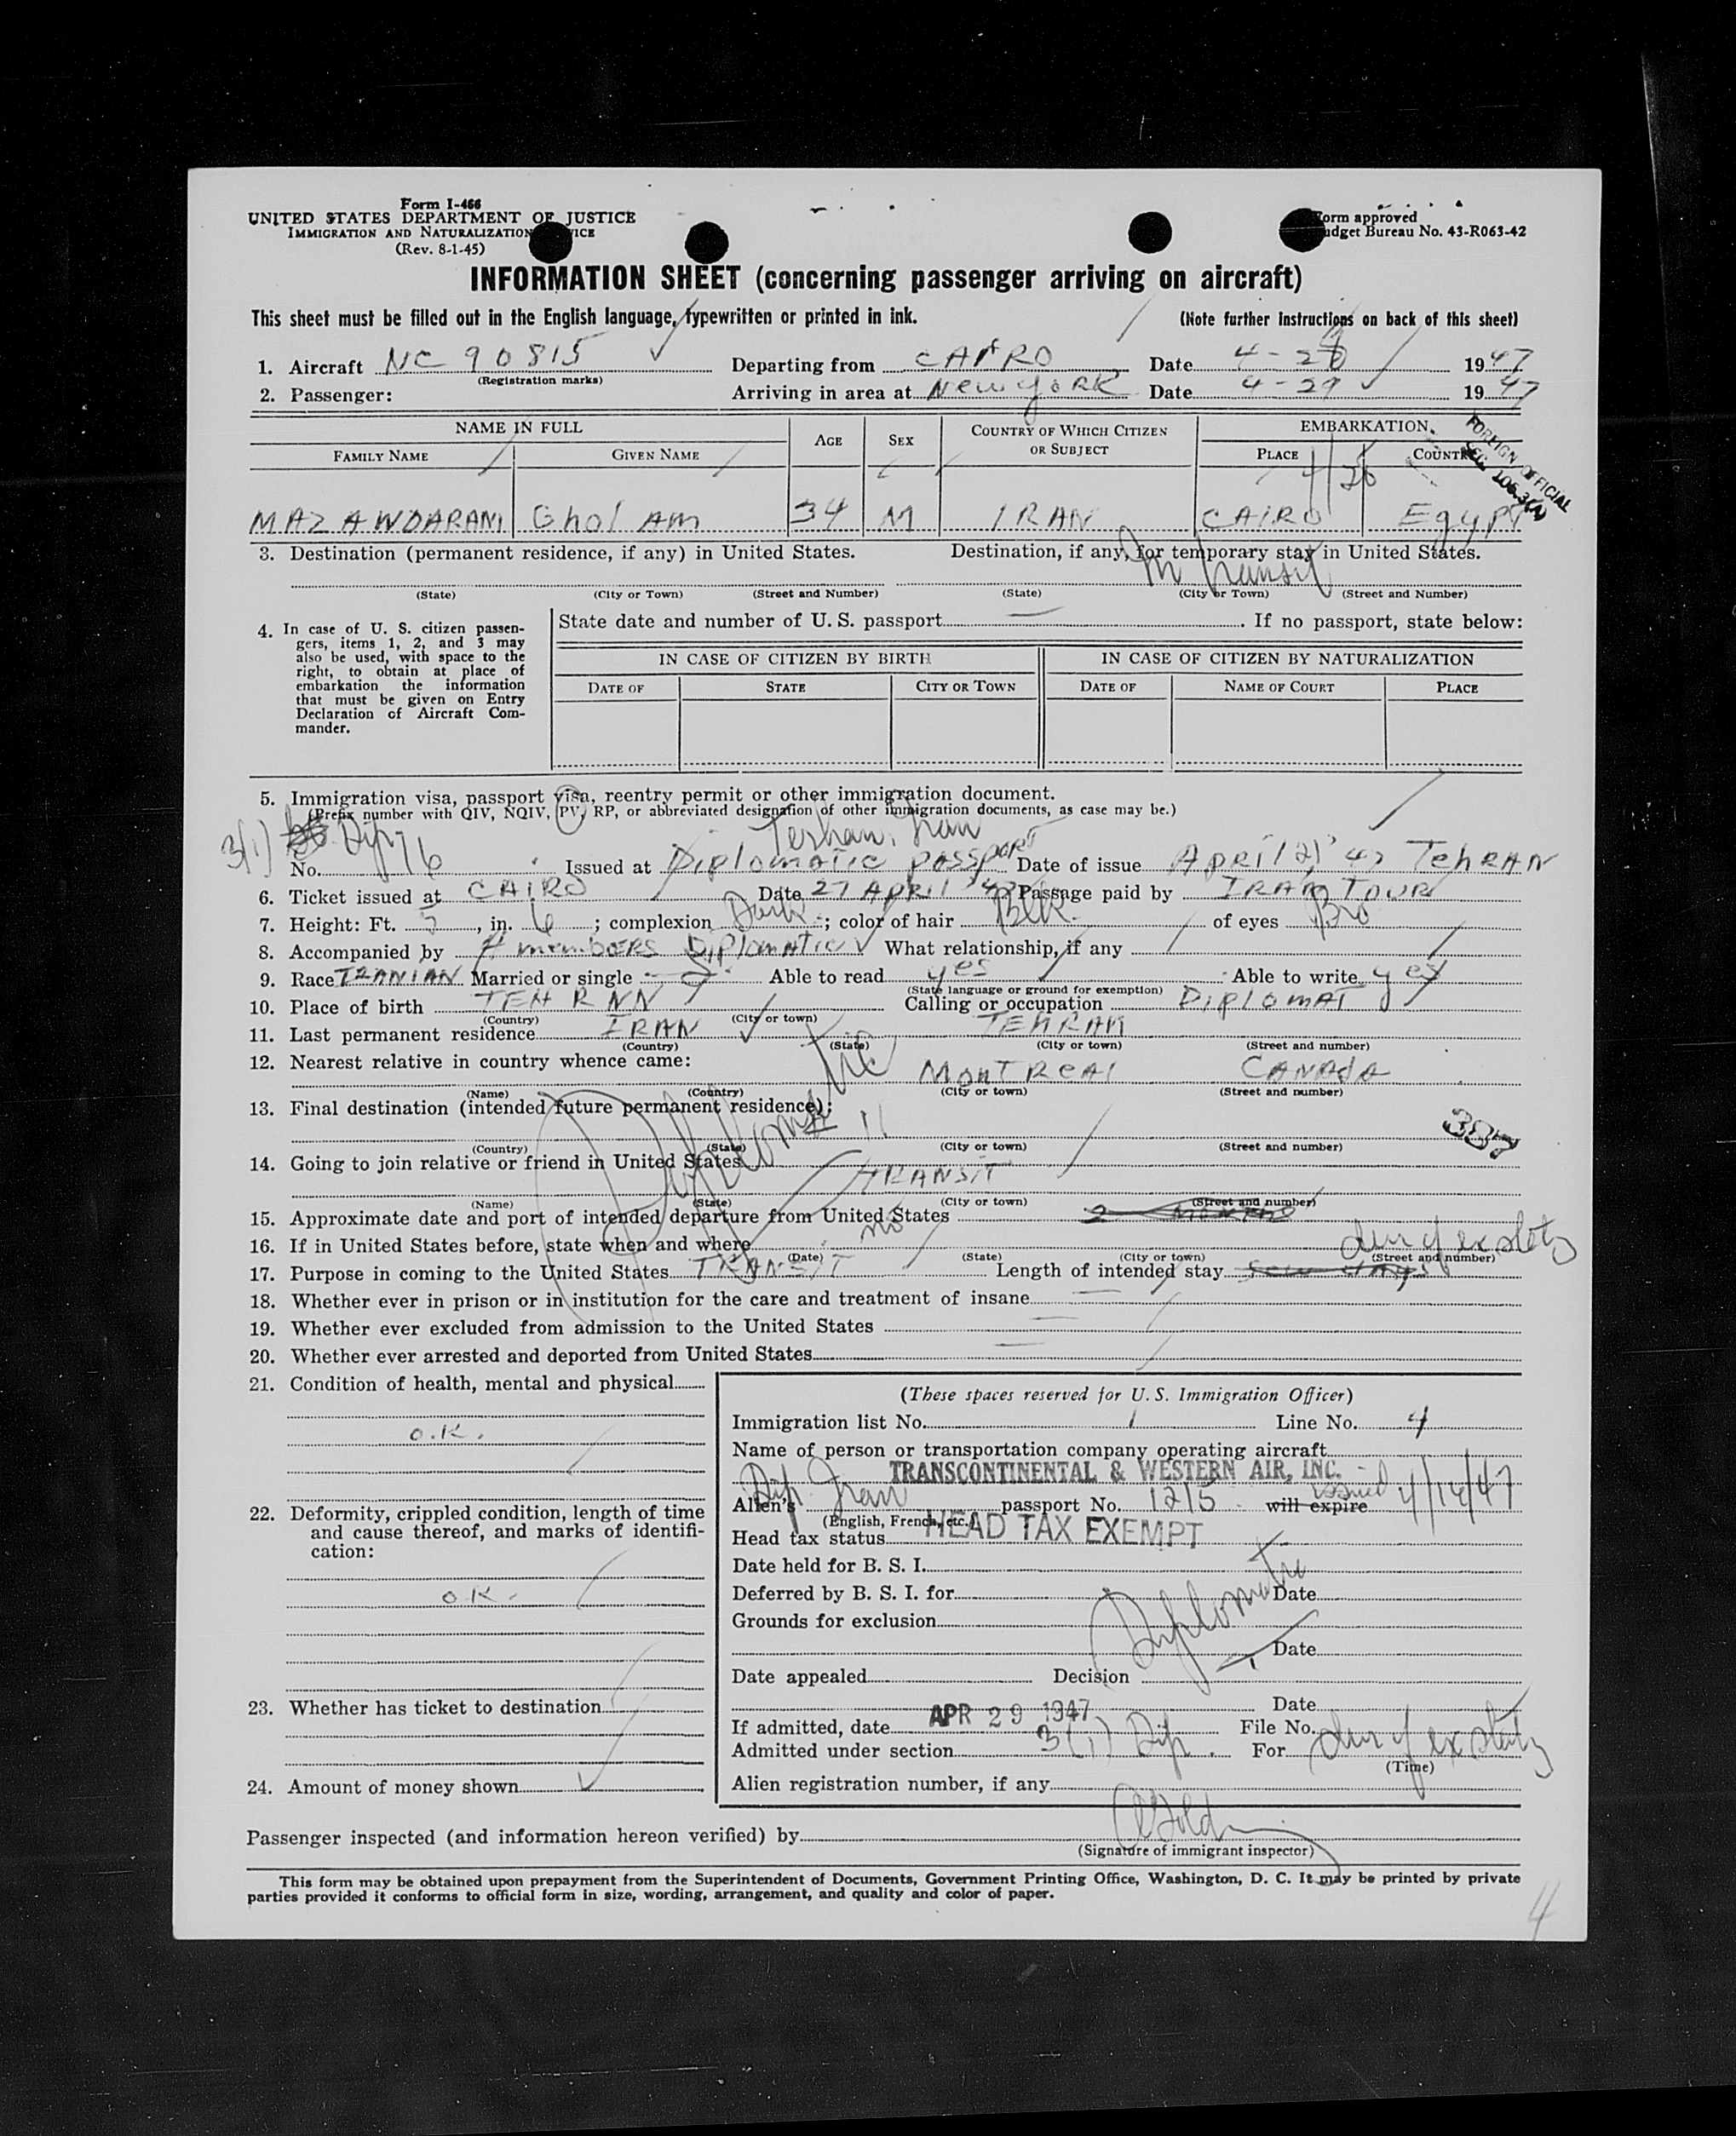 Form I-466
UNITED STATES DEPARTMENT OF JUSTICE
IMMIGRATION AND NATURALIZATION
(Rev. 8-1-45)
Form approved
Budget Bureau No. 43-R063-42
INFORMATION SHEET (concerning passenger arriving on aircraft)
This sheet must be filled out in the English language, typewritten or printed in ink.
(Note further instructions on back of this sheet)
1. Aircraft NC 90815 Departing from CAIRO Date 4-28 1947
(Registration marks)
2. Passenger: Arriving in area at New YORK Date 4-29 1947
NAME IN FULL AGE SEX COUNTRY OF WHICH CITIZEN OR SUBJECT EMBARKATION
FAMILY NAME GIVEN NAME PLACE COUNTRY
FOREIGN OFFICIAL
4/28
MAZAWDARANI Gholam 34 M IRAN CAIRO Egypt
3. Destination (permanent residence, if any) in United States. Destination, if any, for temporary stay in United States.
In transit
(State) (City or Town) (Street and Number) (State) (City or Town) (Street and Number)
4. In case of U. S. citizen passen-
gers, items 1, 2, and 3 may
also be used, with space to the
right, to obtain at place of
embarkation the information
that must be given on Entry
Declaration of Aircraft Com-
mander.
State date and number of U. S. passport — . If no passport, state below:
IN CASE OF CITIZEN BY BIRTH IN CASE OF CITIZEN BY NATURALIZATION
DATE OF STATE CITY OR TOWN DATE OF NAME OF COURT PLACE
5. Immigration visa, passport visa, reentry permit or other immigration document.
(Prefix number with QIV, NQIV, PV, RP, or abbreviated designation of other immigration documents, as case may be.)
3(1) Dip 76 Terhan, Iran
No. Issued at Diplomatic passport Date of issue April 21 '47 TehRAN
6. Ticket issued at CAIRO Date 27 APRIL '47 Passage paid by IRAN TOUR
7. Height: Ft. 5, in. 6; complexion Dark; color of hair Blk. of eyes Bro
8. Accompanied by 4 members Diplomatic What relationship, if any
9. Race IRANIAN Married or single S Able to read yes Able to write yes
(State language or ground for exemption)
10. Place of birth TEHRNN Calling or occupation DiplomAT
(Country) (City or town)
11. Last permanent residence IRAN TEHRAN
(Country) (State) (City or town) (Street and number)
12. Nearest relative in country whence came:
MonTReal CANAdA
(Name) (Country) (City or town) (Street and number)
13. Final destination (intended future permanent residence):
Diplomatic
387
(Country) (State) (City or town) (Street and number)
14. Going to join relative or friend in United States
TRANSIT
(Name) (State) (City or town) (Street and number)
15. Approximate date and port of intended departure from United States 2 months
16. If in United States before, state when and where no
(Date) (State) (City or town) (Street and number)
17. Purpose in coming to the United States TRANSIT Length of intended stay few days
18. Whether ever in prison or in institution for the care and treatment of insane —
19. Whether ever excluded from admission to the United States —
20. Whether ever arrested and deported from United States —
21. Condition of health, mental and physical
O.K.
22. Deformity, crippled condition, length of time
and cause thereof, and marks of identifi-
cation:
OK.
23. Whether has ticket to destination
24. Amount of money shown
(These spaces reserved for U. S. Immigration Officer)
Immigration list No. 1 Line No. 4
Name of person or transportation company operating aircraft
TRANSCONTINENTAL & WESTERN AIR, INC.
Alien's Dip Iran passport No. 1215 will expire issued 4/14/47
(English, French, etc.)
Head tax status HEAD TAX EXEMPT
Date held for B. S. I.
Deferred by B. S. I. for Date
Grounds for exclusion
Diplomatic
Date
Date appealed Decision
Date
If admitted, date APR 29 1947 File No.
Admitted under section 3(1) Dip. For
(Time)
Alien registration number, if any
Passenger inspected (and information hereon verified) by
(Signature of immigrant inspector)
This form may be obtained upon prepayment from the Superintendent of Documents, Government Printing Office, Washington, D. C. It may be printed by private
parties provided it conforms to official form in size, wording, arrangement, and quality and color of paper.
4